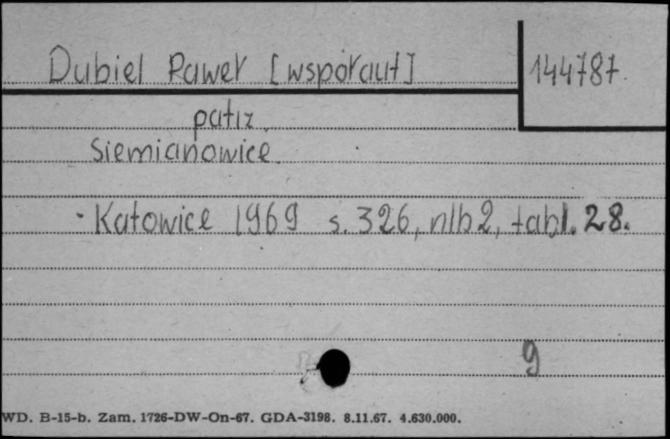 Dubiel Paweł [współaut]
144787
patrz
Siemianowice
Katowice 1969 s. 326, nlb 2, tabl. 28.
9
WD. B-15-b. Zam. 1726-DW-On-67. GDA-3198. 8.11.67. 4.630.000.